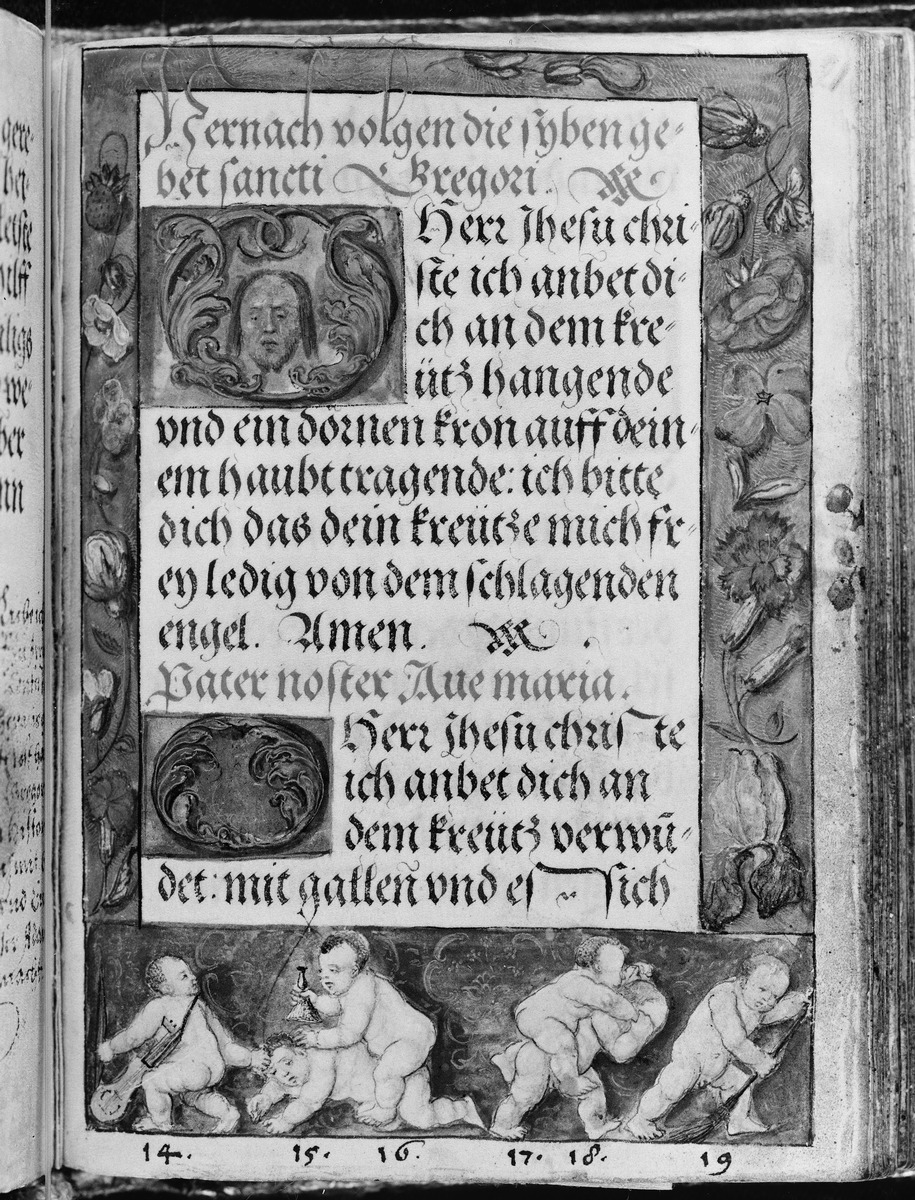 Hernach volgen die syben ge-
bet sancti Gregori.
O Herr Jhesu chri-
ste ich anbet di-
ch an dem kre-
ütz hangende
vnd ein dörnen kron auff dein-
em haubt tragende: ich bitte
dich das dein kreütze mich fr-
ey ledig von dem schlagenden
engel. Amen.
Pater noster Aue maria.
O Herr Jhesu christe
ich anbet dich an
dem kreütz verwu̅-
det: mit gallen̅ vnd essich
14. 15. 16. 17. 18. 19